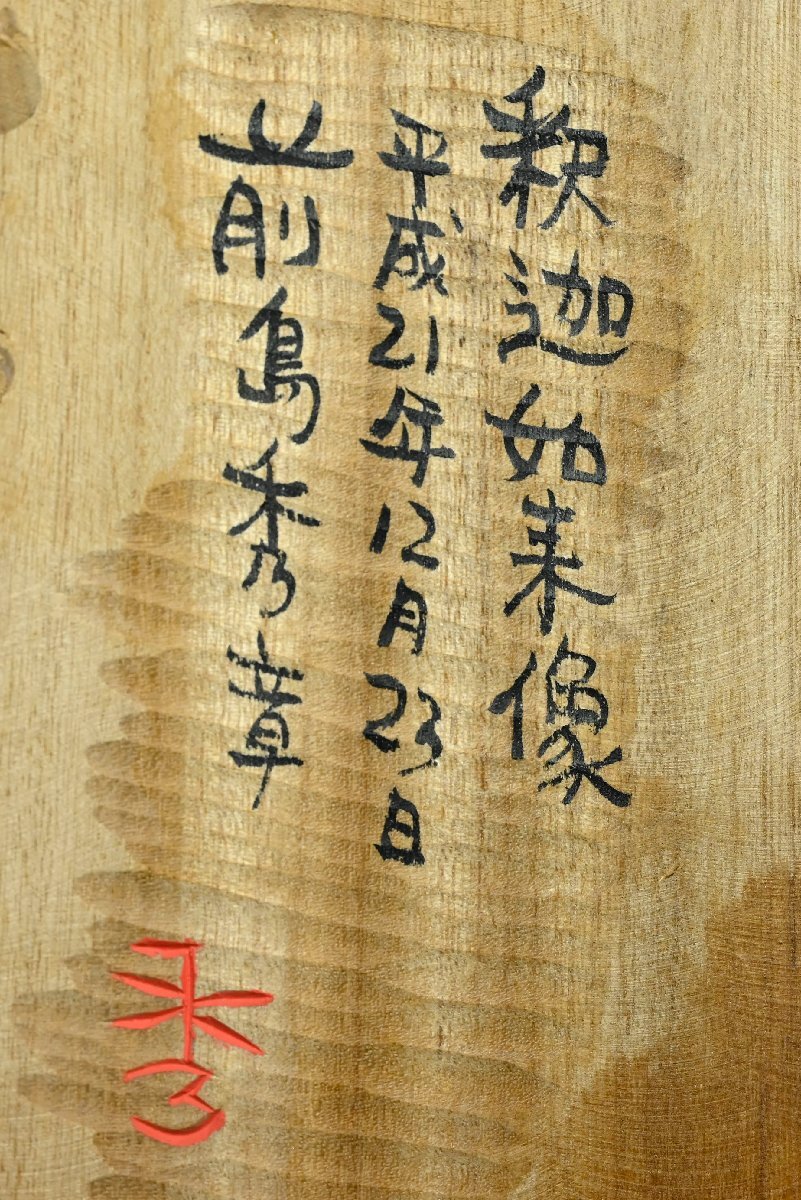 釈迦如来像
平成21年12月23日
前島秀章
秀